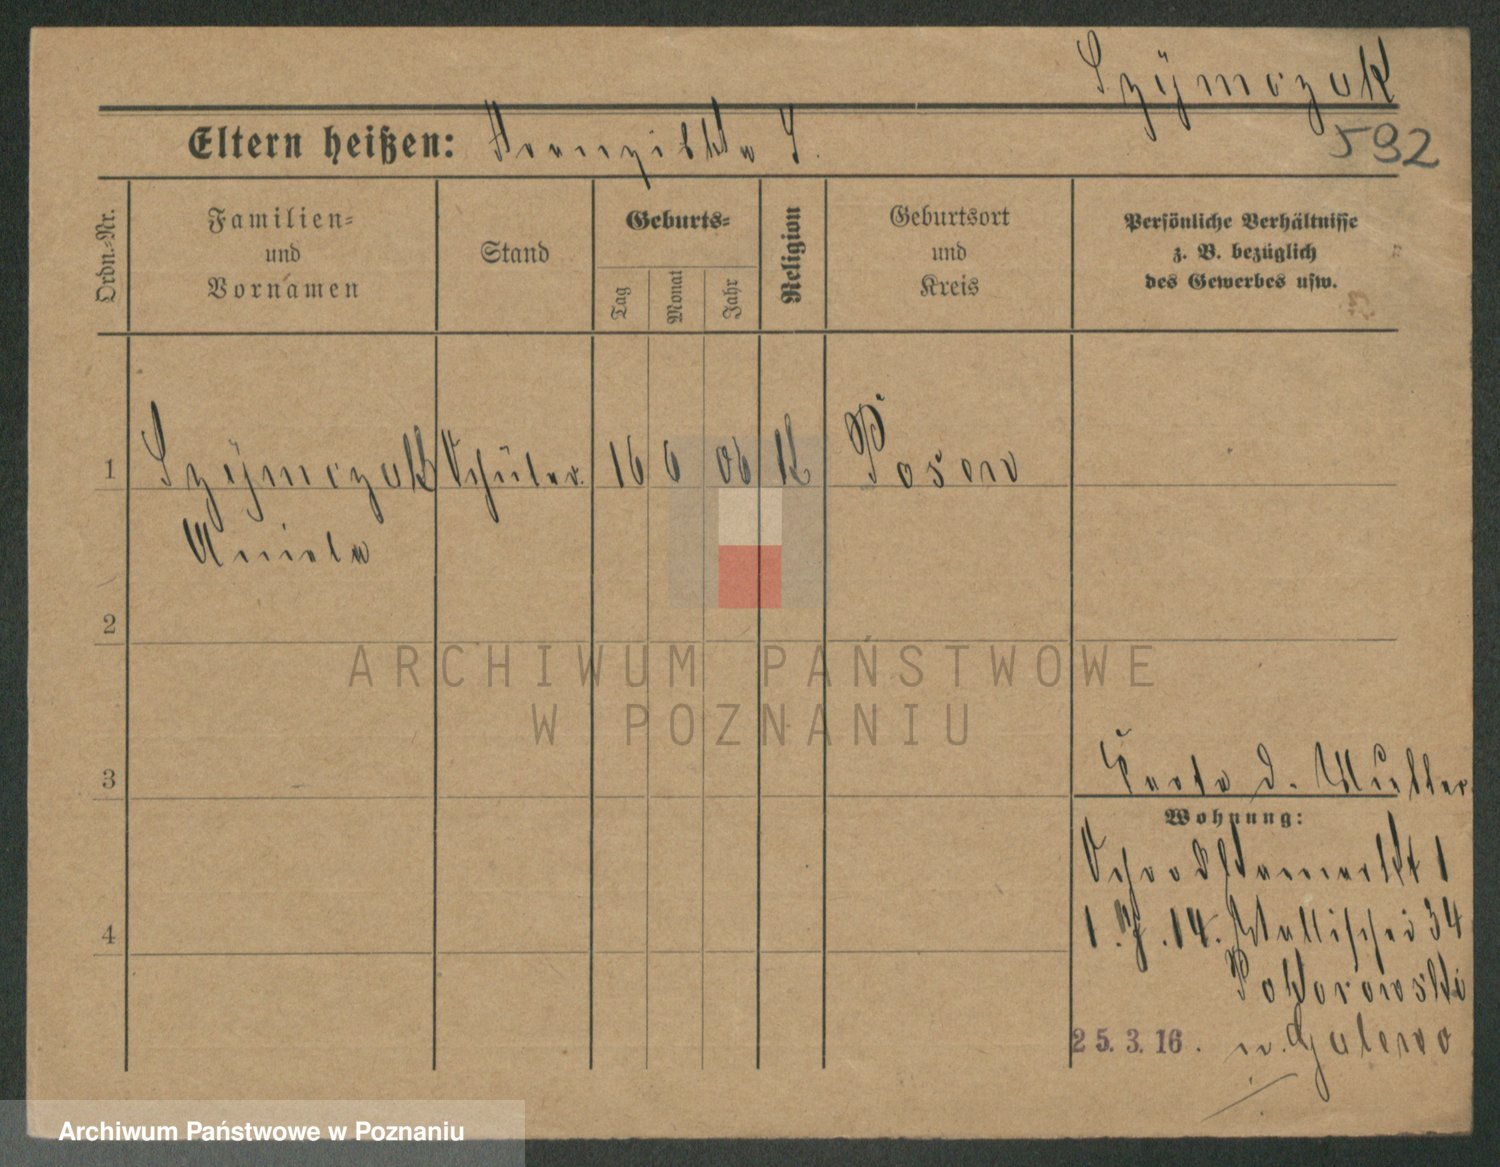 Szÿmczak
592
Eltern heißen: Franziska S.
Ordn.=Nr.
Familien=
und
Vornamen
Stand
Geburts=
Tag
Monat
Jahr
Religion
Geburtsort
und
Kreis
Persönliche Verhältnisse
z. B. bezüglich
des Gewerbes usw.
1 Szÿmczak Schüler. 16 6 06 K Posen
Aniela
2
ARCHIWUM PAŃSTWOWE
W POZNANIU
3
d. Mutter
Wohnung:
1
4
1. 7. 14. Wallischei 34
25.3.16. n.
Archiwum Państwowe w Poznaniu